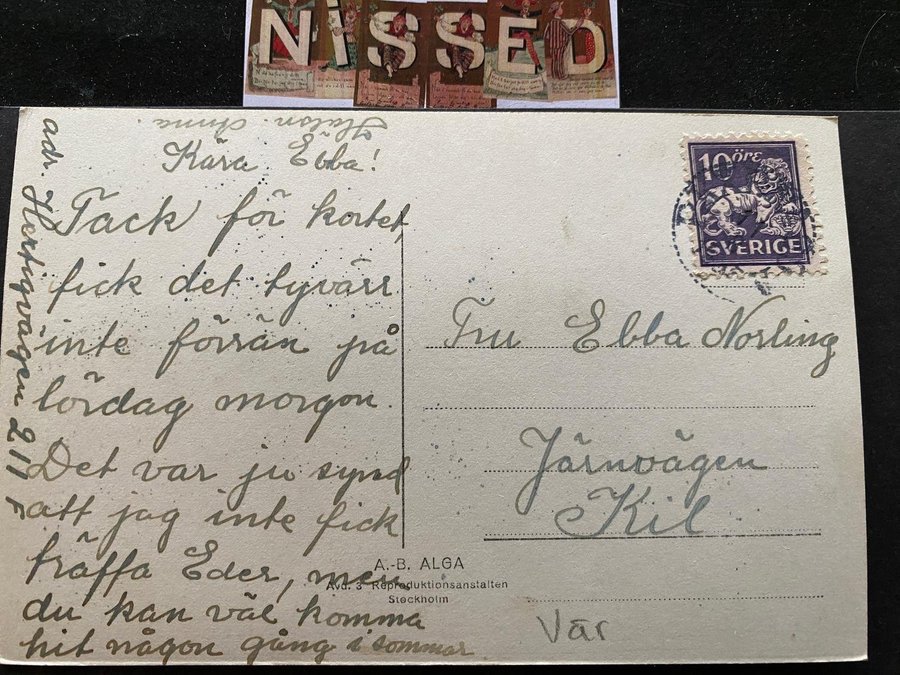 NISSED
Kära Ebba!
Tack för kortet,
fick det tyvärr
inte förrän på
lördag morgon.
Det var ju synd
att jag inte fick
träffa Eder, men
du kan väl komma
hit någon gång i sommar
Anna.
adr. Hertigvägen 211
10 ÖRE
SVERIGE
Fru Ebba Norling
Järnvägen
Kil
A.-B. ALGA
Avd. 3 Reproduktionsanstalten
Stockholm
Vär